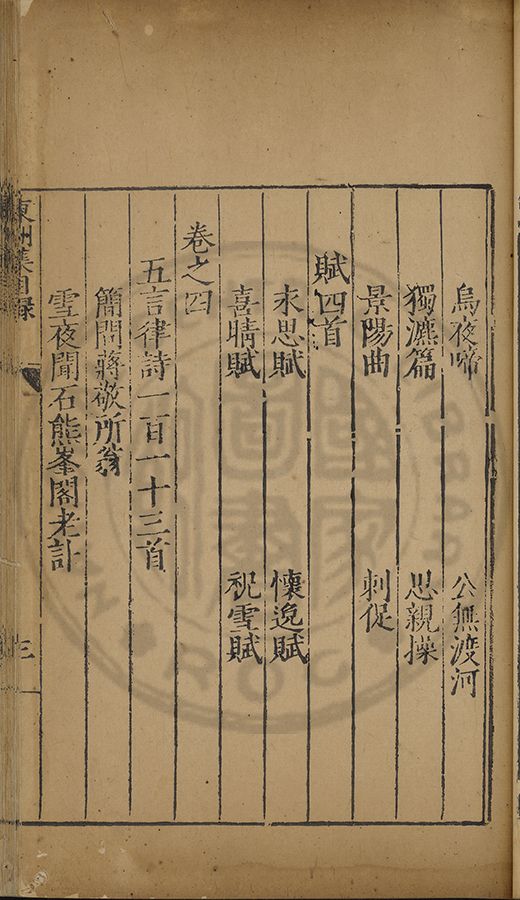 烏夜啼 公無渡河
獨漉篇 思親操
景陽曲 刺促
賦四首
永思賦 懷逸賦
喜晴賦 祝雪賦
卷之四
五言律詩一百一十三首
簡問蔣敬所翁
雪夜聞石熊峯閣老訃
東洲集目録 三